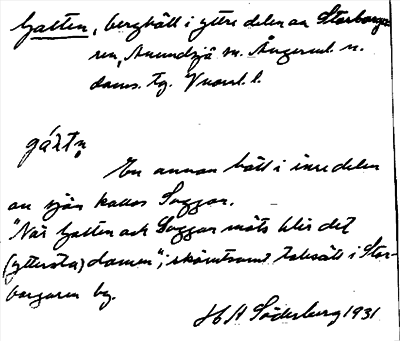 Galten, berghäll i yttre delen av Storborga-
ren, Anundsjö sn. Ångerml. n.
doms. tg. Vnorrl. l.
gáltn̥
En annan häll i inre delen
av sjön kallas Suggan.
"När Galten och Suggan möts blir det
(yttersta) domen"; skämtsamt talesätt i Stor-
borgaren by.
H A Söderberg 1931